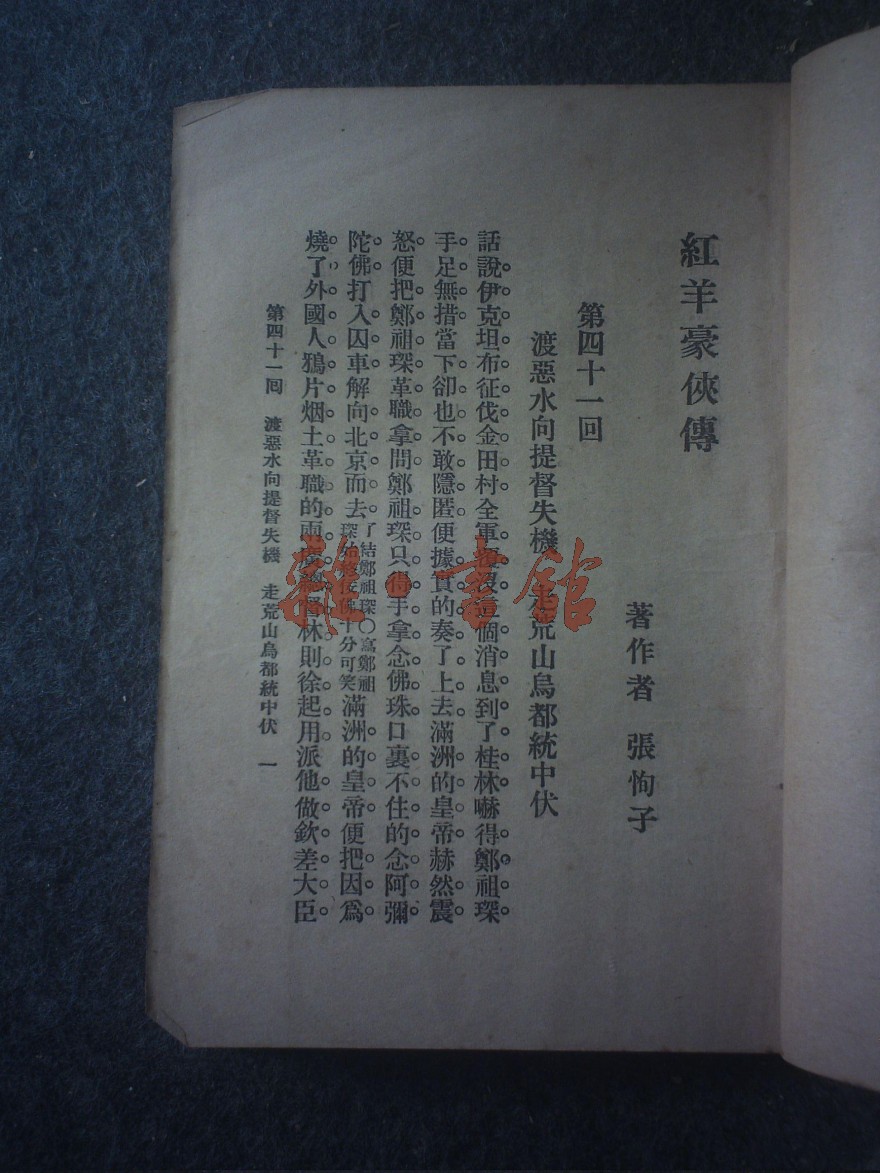 紅羊豪俠傳
著作者 張恂子
第四十一回
渡惡水向提督失機 走荒山烏都統中伏
話說伊克坦布征伐金田村全軍覆沒這個消息到了桂林嚇得鄭祖琛
手足無措當下卻也不敢隱匿便據實的奏了上去滿洲的皇帝赫然震
怒便把鄭祖琛革職拿問鄭祖琛只得手拿念佛珠口裏不住的念阿彌
陀佛打入囚車解向北京而去了結鄭祖琛〇寫鄭祖琛始終佞佛十分可笑滿洲的皇帝便把因爲
燒了外國人鴉片烟土革職的兩廣總督林則徐起用派他做欽差大臣
第四十一回 渡惡水向提督失機 走荒山烏都統中伏 一
雜·書館